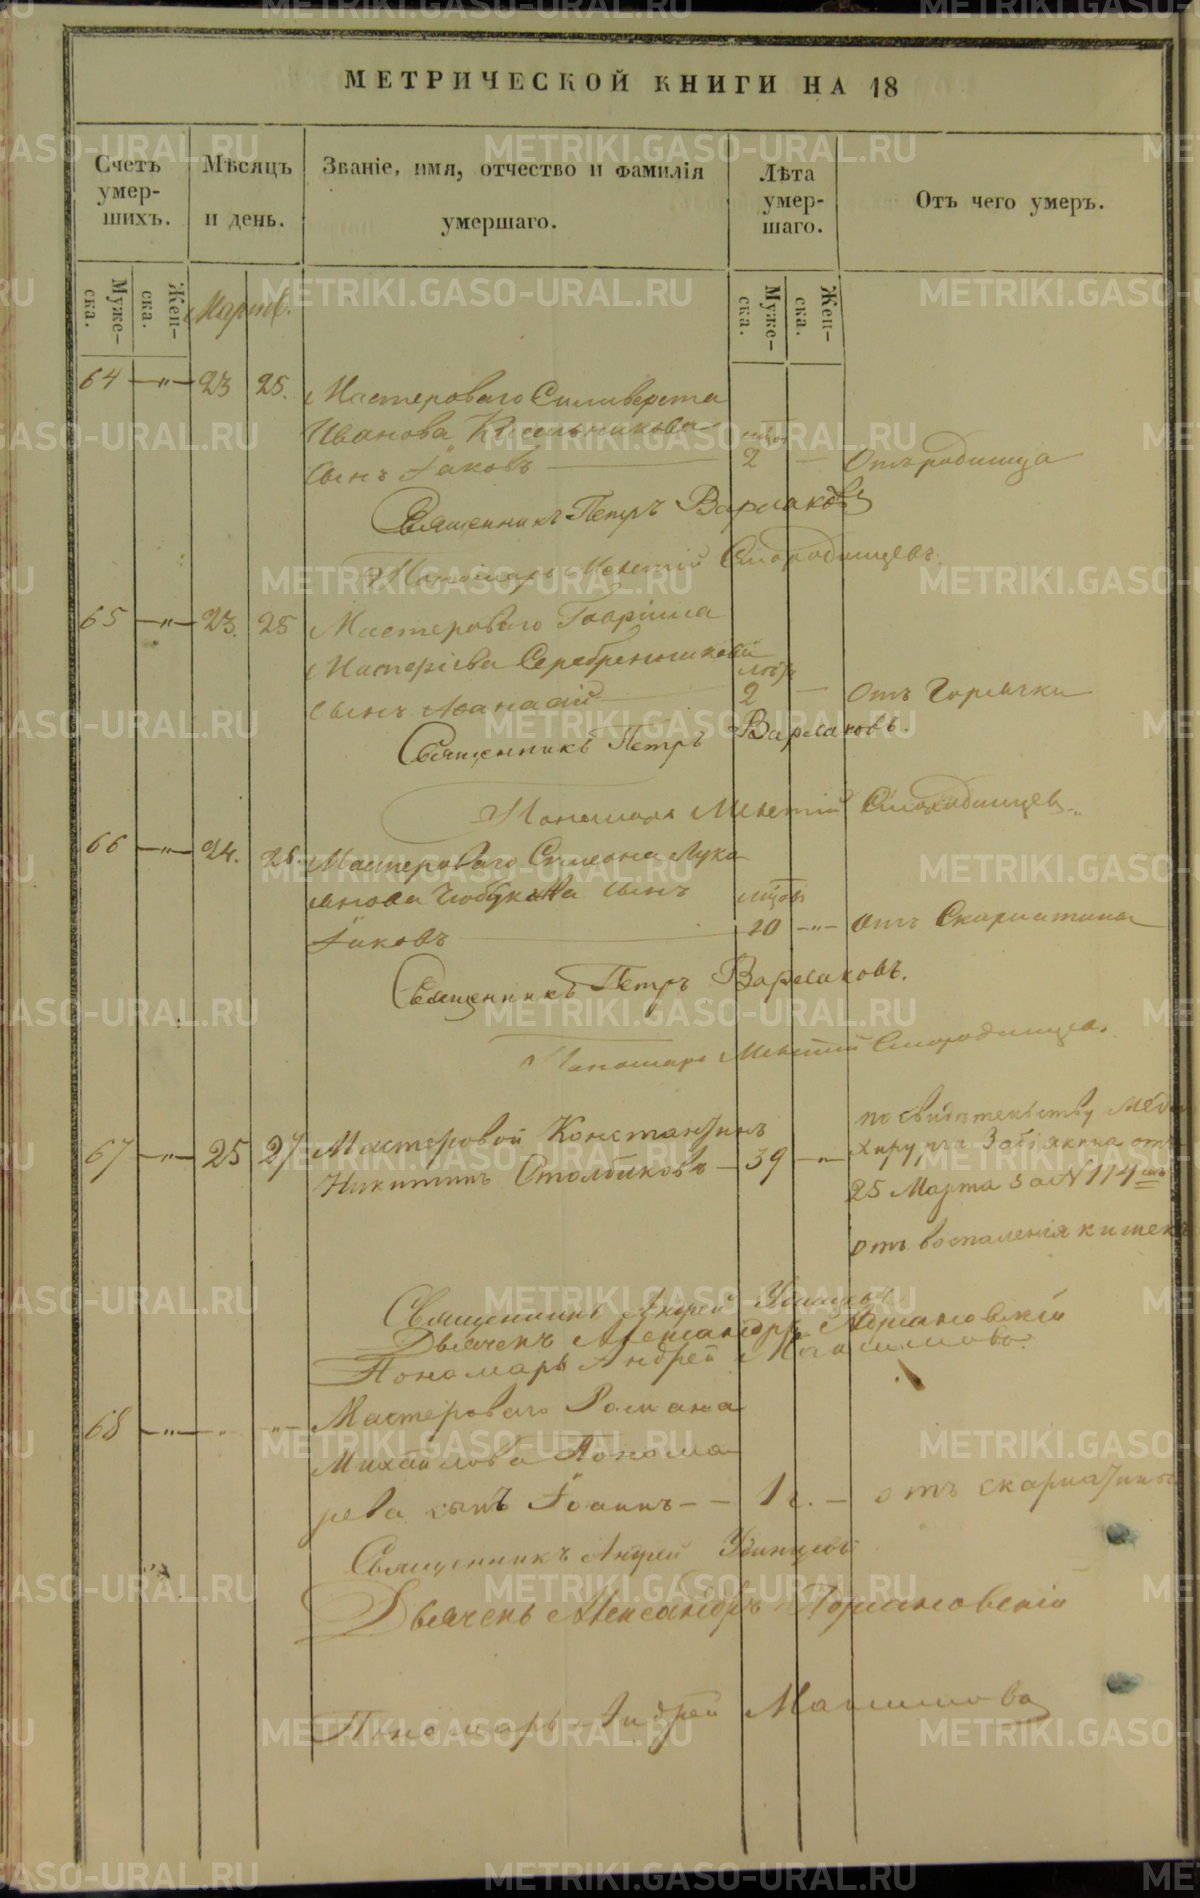 МЕТРИЧЕСКОЙ КНИГИ НА 18
Счетъ умер-шихъ.
Мѣсяцъ и день.
Званіе, имя, отчество и фамилія умершаго.
Лѣта умер-шаго.
Отъ чего умеръ.
Муже-ска.
Жен-ска.
Муже-ска.
Жен-ска.
Мартъ.
64 —"— 23 25. Мастероваго Силиверста
Иванова Красильникова
сынъ Іаковъ — 2 — Отъ родимца
Священникъ Петръ Варлаковъ
Пономарь Мелетій Смородинцевъ.
65 —"— 23. 25 Мастероваго Гавріила
Серебренникова
сынъ Аѳанасій — 2 — отъ Горячки
Священникъ Петръ Варлаковъ.
Пономарь Мелетій Смородинцев
66 —"— 24. 26. Мастероваго Симеона Лука
янова сынъ
Іаковъ — 10 —"— отъ Скарлатина
Священникъ Петръ Варлаковъ.
Пономарь Мелетій Смородинцев.
67 —"— 25 27 Мастеровой Константинъ
Никитинъ Столбиковъ — 39 —"—
по свидѣтельству Меди
хирурга от
25 Марта за N 114
отъ воспаленія кишекъ
Священникъ Андрей Удинцевъ
Дьячекъ Александръ Адріановскій
Пономарь Андрей
68 —"— " "— Мастероваго Романа
Михайлова Понома
рева сынъ Іоаннъ — — 1 г. — отъ скарлатины
Священникъ Андрей Удинцевъ
Дьячекъ Александръ Адріановскій
Пономарь Андрей
METRIKI.GASO-URAL.RU